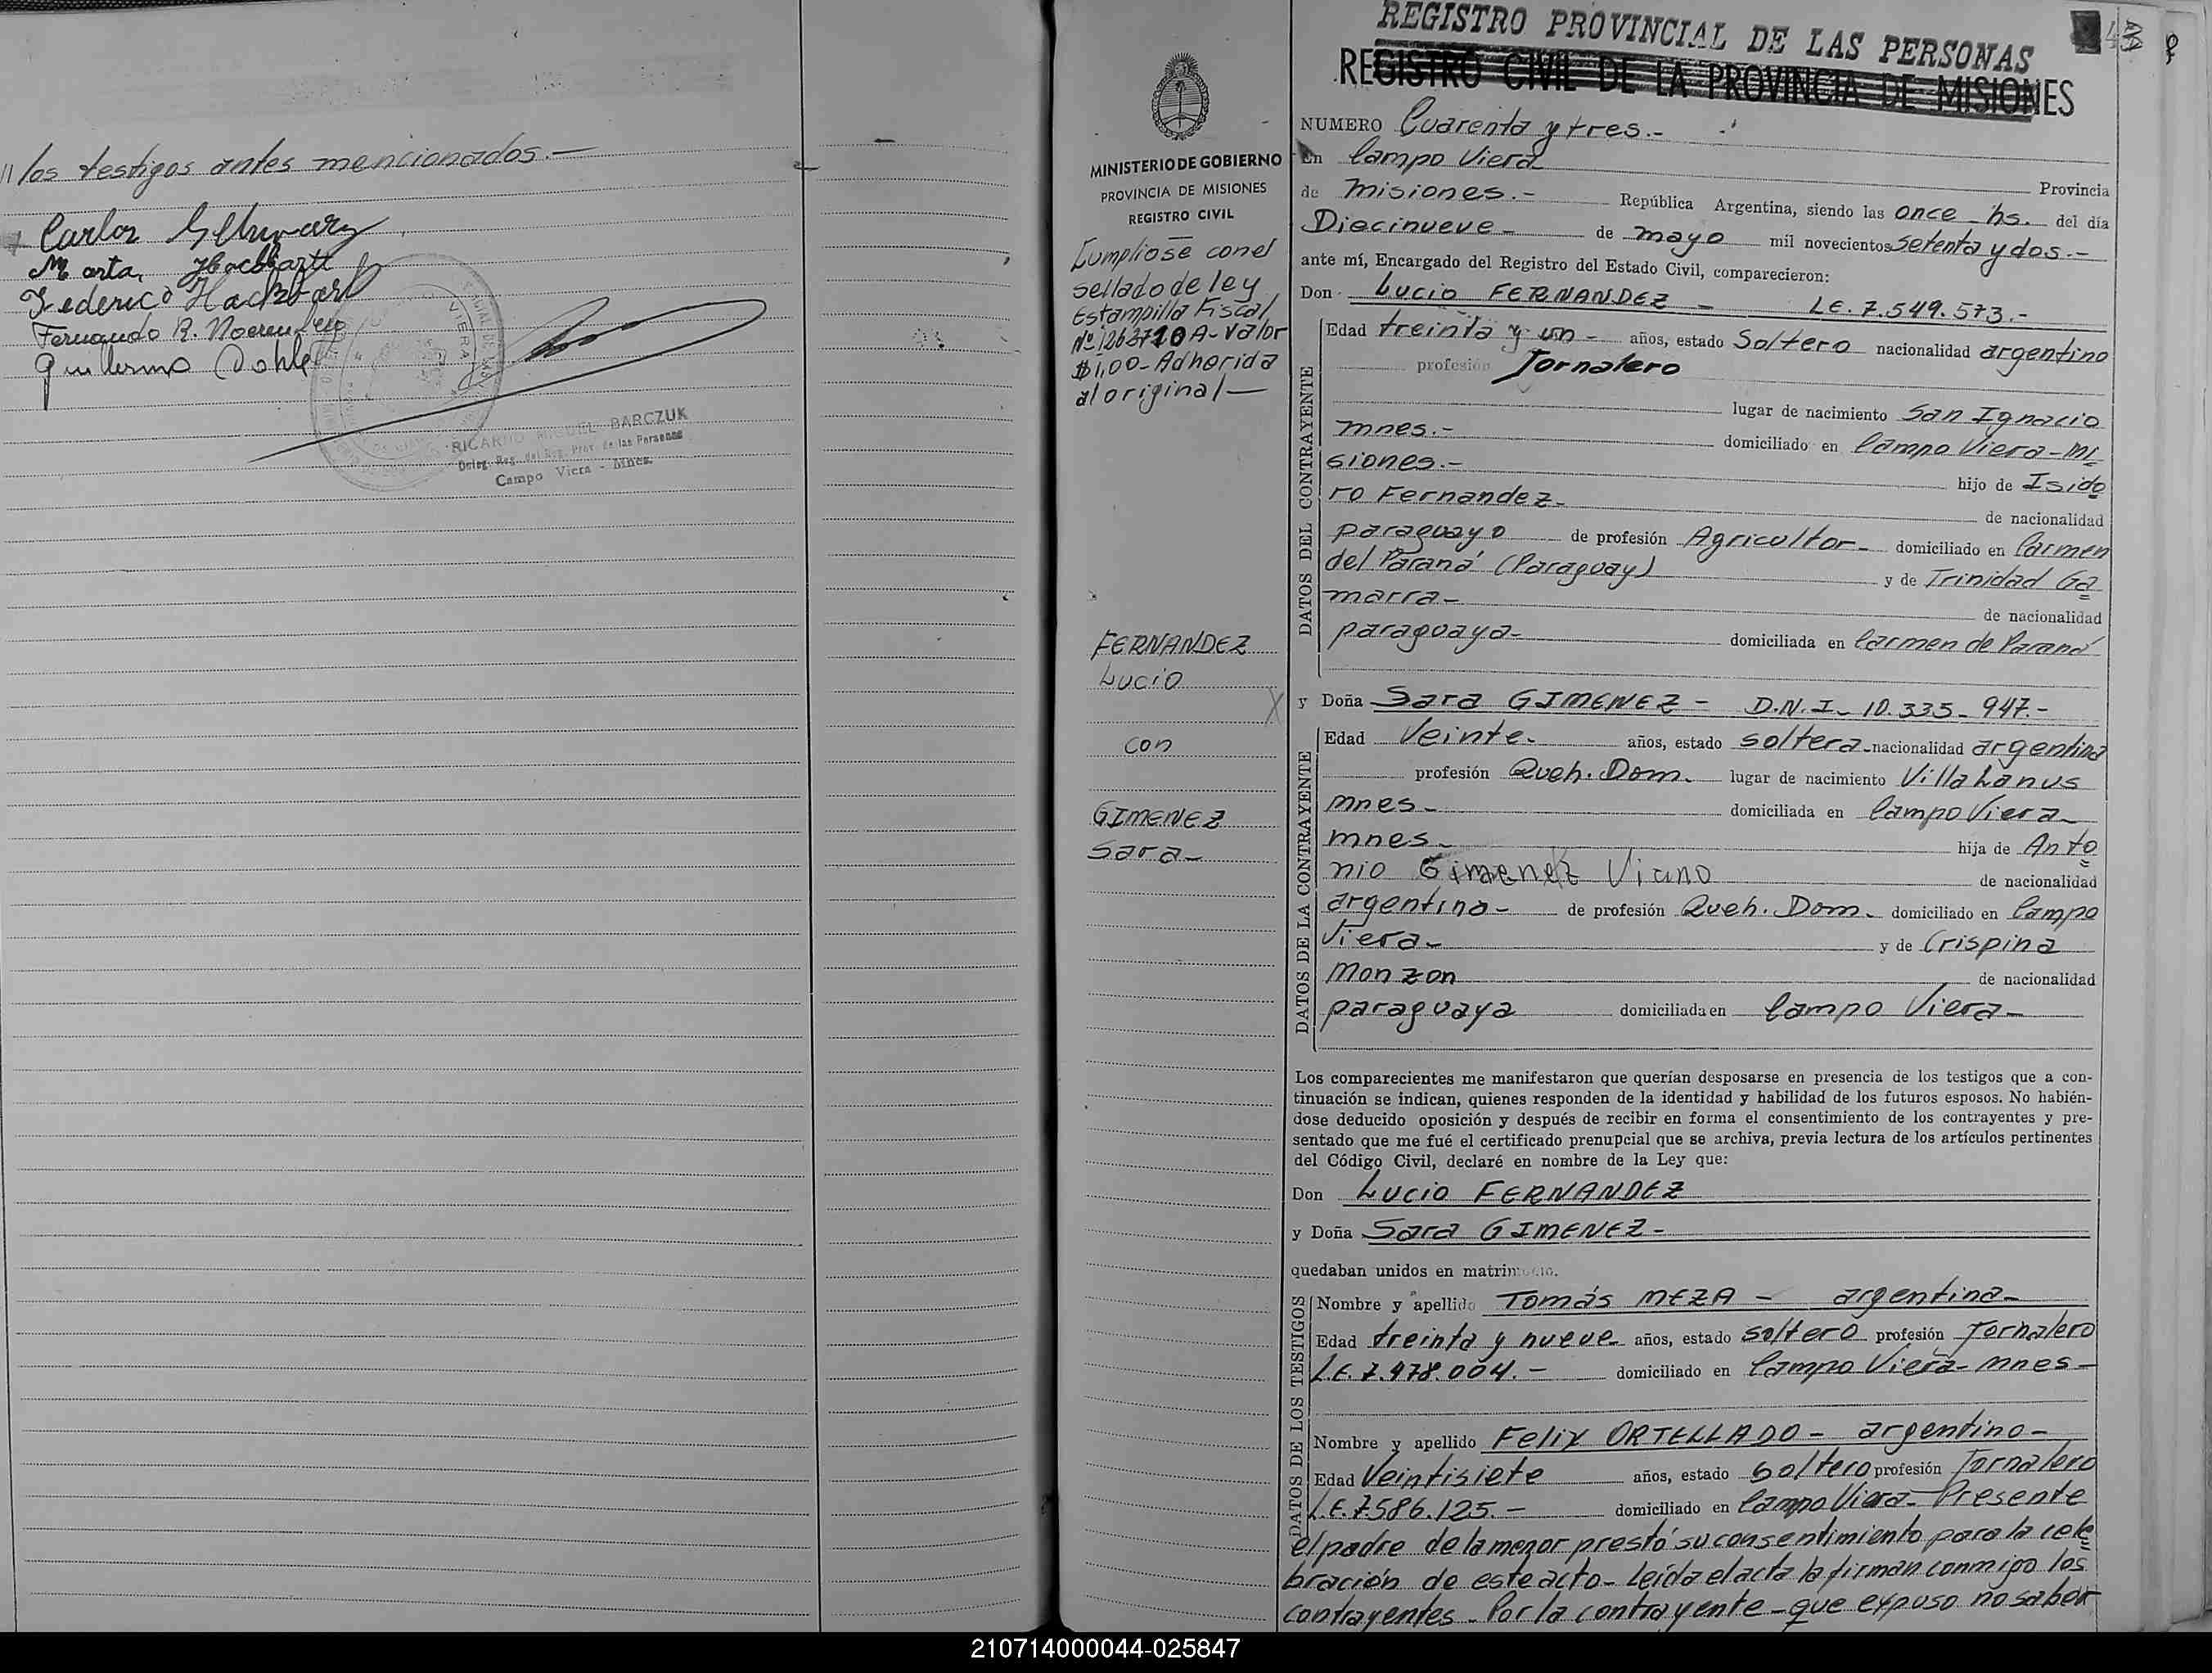 // los testigos antes mencionados.-
Carlos
Marta
Federico Hackbart
Fernando R.
Guillermo Dohle
VIERA
RICARDO MIGUEL BARCZUK
Deleg. Reg. del Reg. Prov. de las Personas
Campo Viera - Mnes.
REGISTRO PROVINCIAL DE LAS PERSONAS
REGISTRO CIVIL DE LA PROVINCIA DE MISIONES
MINISTERIO DE GOBIERNO
PROVINCIA DE MISIONES
REGISTRO CIVIL
Cumpliose con el
sellado de ley
Estampilla Fiscal
Nº 1263710 A- Valor
$1,00- Adherida
al original-
FERNANDEZ
Lucio
con
GIMENEZ
Sara-
NUMERO Cuarenta y tres.-
En Campo Viera
Provincia
de Misiones.- República Argentina, siendo las once hs. del día
Diecinueve- de mayo mil novecientos setenta y dos.-
ante mí, Encargado del Registro del Estado Civil, comparecieron:
Don Lucio FERNANDEZ - L.E. 7.549.573.-
DATOS DEL CONTRAYENTE
Edad treinta y un- años, estado Soltero nacionalidad argentino
profesión Jornalero
lugar de nacimiento San Ignacio
mnes.- domiciliado en Campo Viera-Mi
siones.- hijo de Isido
ro Fernandez- de nacionalidad
paraguayo de profesión Agricultor- domiciliado en Carmen
del Paraná (Paraguay) y de Trinidad Ga
marra- de nacionalidad
paraguaya- domiciliada en Carmen de Paraná
y Doña Sara GIMENEZ - D.N.I- 10.335.947.-
DATOS DE LA CONTRAYENTE
Edad Veinte- años, estado soltera- nacionalidad argentina
profesión Queh. Dom. lugar de nacimiento Villa Lanus
mnes- domiciliada en Campo Viera-
mnes- hija de Anto
nio Gimenez Viano de nacionalidad
argentino- de profesión Queh. Dom. domiciliado en Campo
Viera- y de Crispina
Monzon de nacionalidad
paraguaya domiciliada en Campo Viera-
Los comparecientes me manifestaron que querían desposarse en presencia de los testigos que a con-
tinuación se indican, quienes responden de la identidad y habilidad de los futuros esposos. No habién-
dose deducido oposición y después de recibir en forma el consentimiento de los contrayentes y pre-
sentado que me fué el certificado prenupcial que se archiva, previa lectura de los artículos pertinentes
del Código Civil, declaré en nombre de la Ley que:
Don Lucio FERNANDEZ
y Doña Sara GIMENEZ-
quedaban unidos en matrimonio.
DATOS DE LOS TESTIGOS
Nombre y apellido Tomás MEZA - argentino-
Edad treinta y nueve- años, estado soltero profesión Jornalero
L.E. 7.478.004.- domiciliado en Campo Viera- Mnes-
Nombre y apellido Felix ORTELLADO- argentino-
Edad Veintisiete años, estado soltero profesión Jornalero
L.E. 7.586.125.- domiciliado en Campo Viera- Presente
el padre de la menor prestó su consentimiento para la cele
bración de este acto- Leída el acta la firman conmigo los
contrayentes- Por la contrayente- que expuso no saber
210714000044-025847